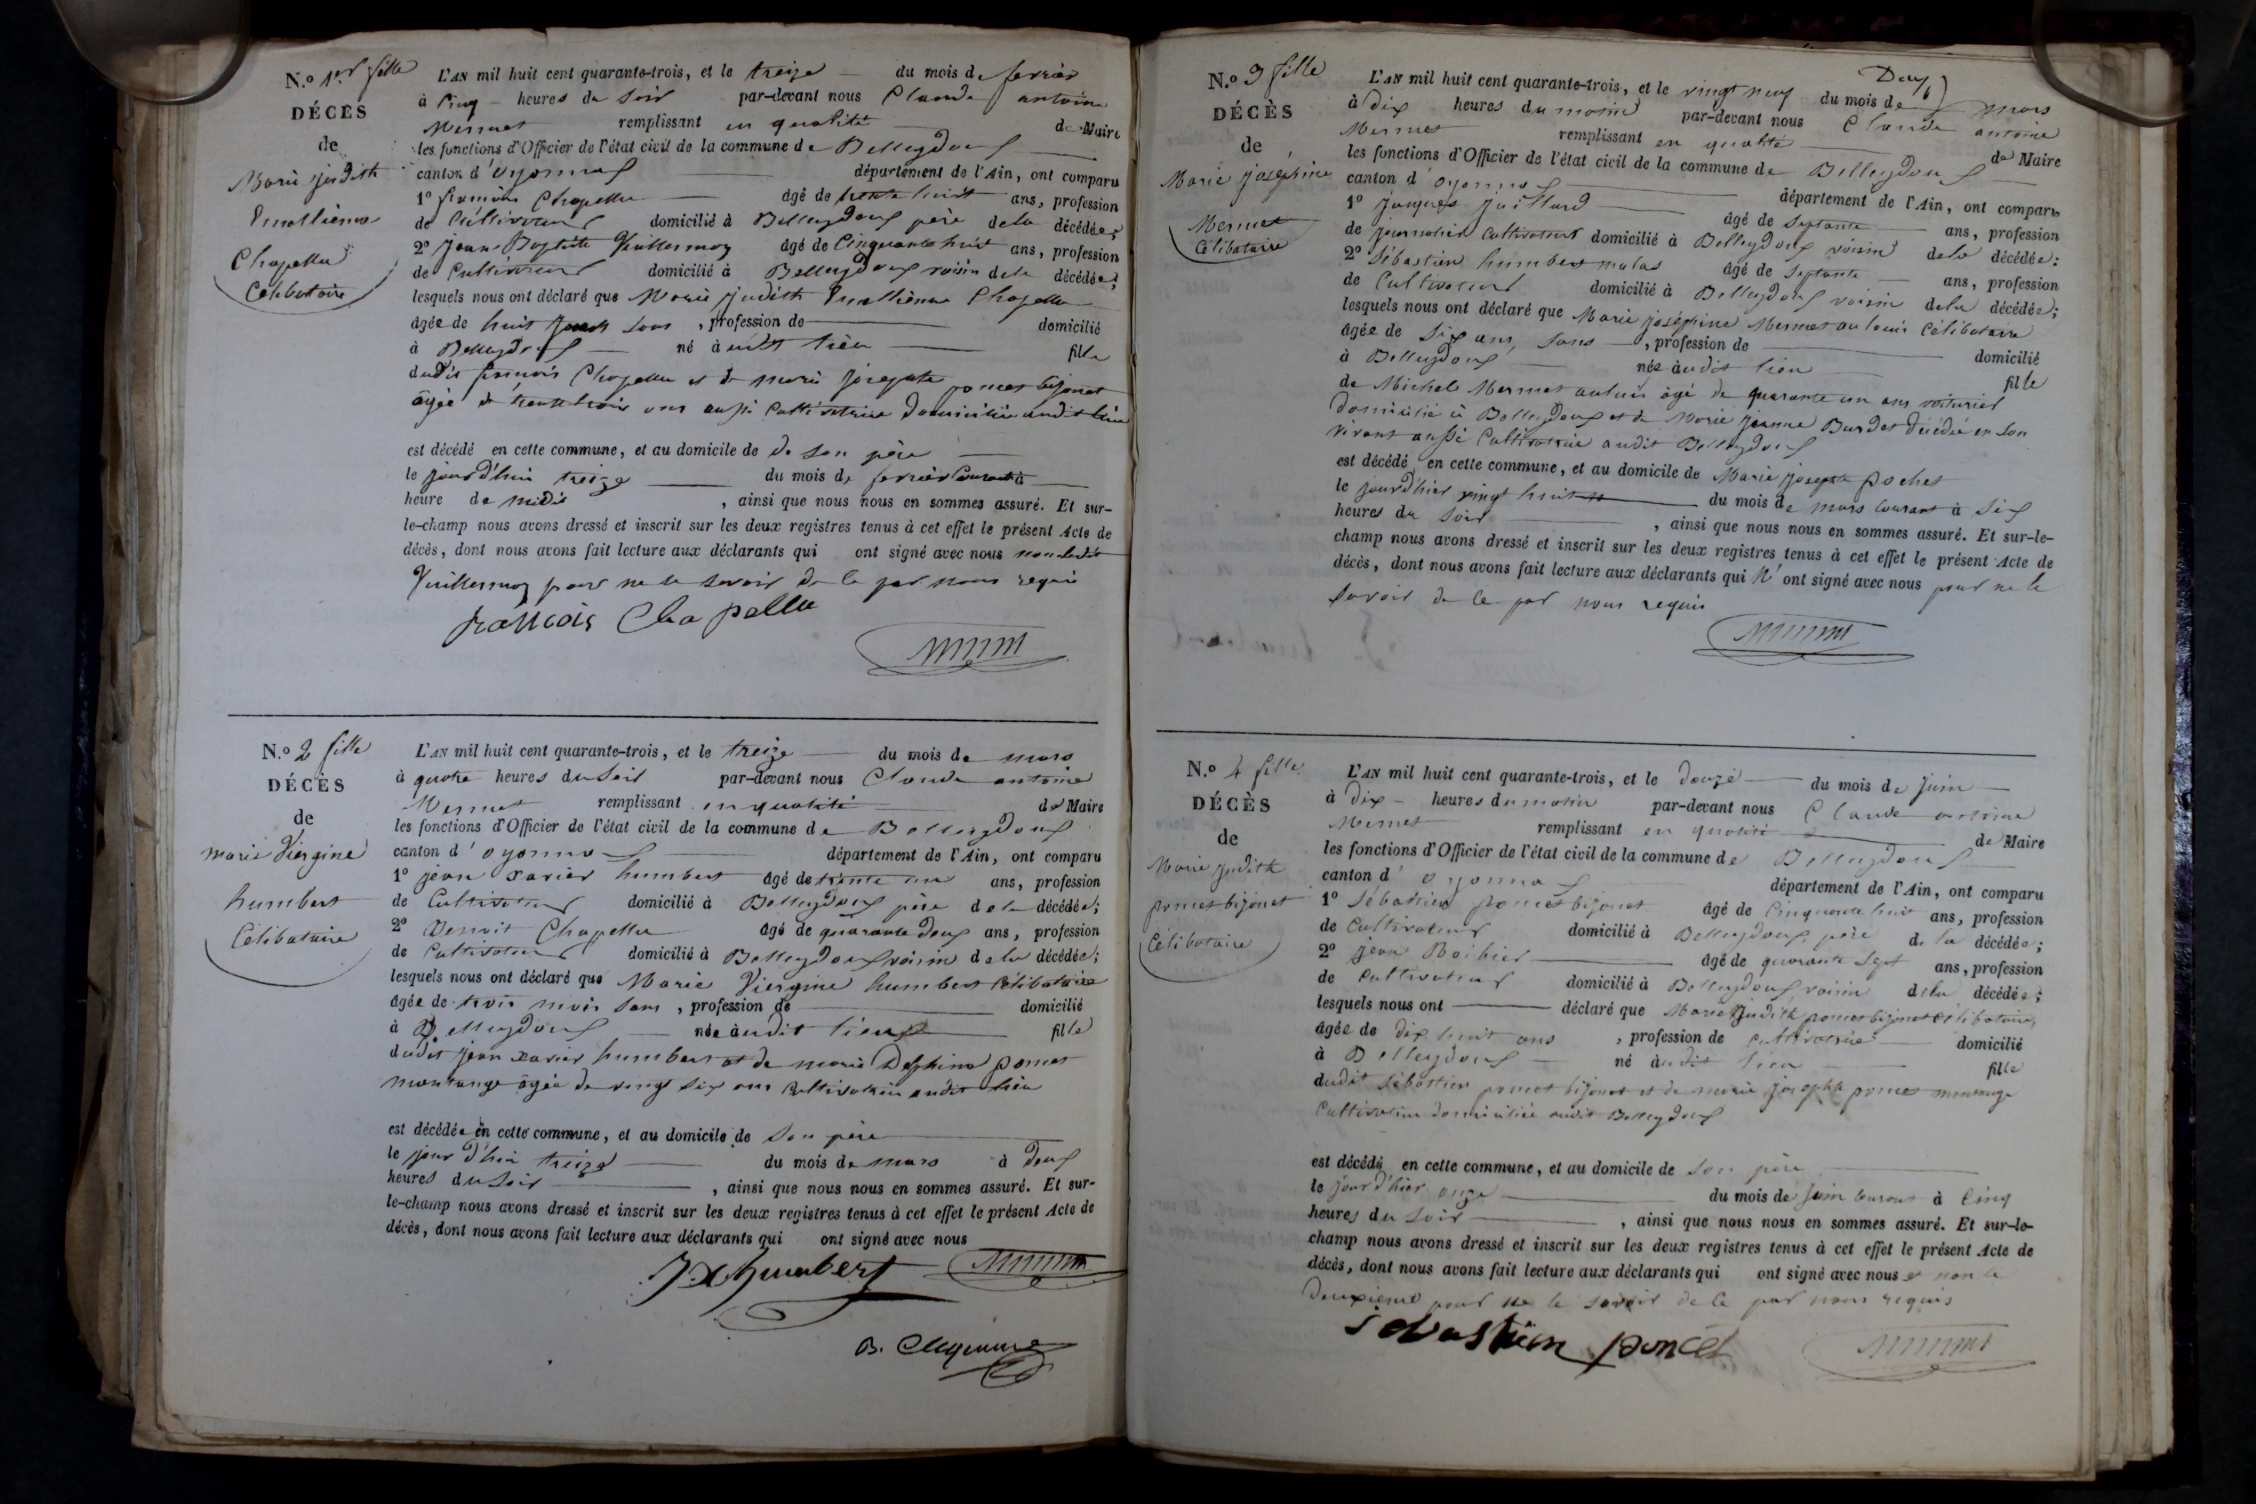 N.º 1er fille
DÉCÈS
de
Marie judith
Emellienne
Chapellu
Célibataire
L'AN mil huit cent quarante-trois, et le treize du mois de ferrier
à Cinq heures du Soir par-devant nous Claude antoine
Mermet remplissant en qualité de Maire
les fonctions d'Officier de l'état civil de la commune de Belleydoux
canton d'oyonnax département de l'Ain, ont comparu
1º francois Chapellu âgé de trente huit ans, profession
de Cultivateur domicilié à Belleydoux père de la décédée;
2º jean Baptiste Vuillermoz âgé de Cinquante huit ans, profession
de Cultivateur domicilié à Belleydoux voisin de la décédée;
lesquels nous ont déclaré que Marie judith Emellienne Chapellu
âgée de huit jours Sans , profession de domicilié
à Belleydoux né audit lieu fille
dudit francois Chapellu et de marie josephte poncet bijonet
âgée de trente trois ans aussi Cultivatrice domiciliée audit lieu
est décédé en cette commune, et au domicile de de Son père
le jourd'hui treize du mois de ferrier Courant à
heure de midi , ainsi que nous nous en sommes assuré. Et sur-
le-champ nous avons dressé et inscrit sur les deux registres tenus à cet effet le présent Acte de
décès, dont nous avons fait lecture aux déclarants qui ont signé avec nous non ledit
Vuillermoz pour ne le Savoir de ce par nous requis
francois Chapellu
N.º 2 fille
DÉCÈS
de
marie Viergine
humbert
Célibataire
L'AN mil huit cent quarante-trois, et le treize du mois de mars
à quatre heures du Soir par-devant nous Claude antoine
Mermet remplissant en qualité de Maire
les fonctions d'Officier de l'état civil de la commune de Belleydoux
canton d'oyonnax département de l'Ain, ont comparu
1º jean xavier humbert âgé de trente un ans, profession
de Cultivateur domicilié à Belleydoux père de la décédée;
2º Benoit Chapellu âgé de quarante deux ans, profession
de Cultivateur domicilié à Belleydoux voisin de la décédée;
lesquels nous ont déclaré que Marie Viergine humbert Célibataire
âgée de trois mois Sans , profession de domicilié
à Belleydoux née audit lieux fille
dudit jean xavier humbert et de marie Delphine poncet
montange âgée de vingt six ans Cultivatrice audit lieu
est décédée en cette commune, et au domicile de Son père
le jour d'hui treize du mois de mars à deux
heures du Soir , ainsi que nous nous en sommes assuré. Et sur-
le-champ nous avons dressé et inscrit sur les deux registres tenus à cet effet le présent Acte de
décès, dont nous avons fait lecture aux déclarants qui ont signé avec nous
J X humbert
N.º 3 fille
DÉCÈS
de
Marie joséphine
Mermet
Célibataire
L'AN mil huit cent quarante-trois, et le vingt neuf du mois de mars
à dix heures du matin par-devant nous Claude antoine
Mermet remplissant en qualité de Maire
les fonctions d'Officier de l'état civil de la commune de Belleydoux
canton d'oyonnax département de l'Ain, ont comparu
1º jacques juillard âgé de Septante ans, profession
de journalier Cultivateur domicilié à Belleydoux voisin de la décédée;
2º Sébastien humbert malas âgé de Septante ans, profession
de Cultivateur domicilié à Belleydoux voisin de la décédée;
lesquels nous ont déclaré que Marie joséphine Mermet au louis Célibataire
âgée de Six ans, Sans , profession de domicilié
à Belleydoux née audit lieu fille
de Michel Mermet au louis âgé de quarante un ans voiturier
domicilié à Belleydoux et de Marie jeanne Burdet décédée en Son
vivant aussi Cultivatrice audit Belleydoux
est décédé en cette commune, et au domicile de Marie josephte pochet
le jourd'hier vingt huit du mois de mars Courant à Six
heures du Soir , ainsi que nous nous en sommes assuré. Et sur-le-
champ nous avons dressé et inscrit sur les deux registres tenus à cet effet le présent Acte de
décès, dont nous avons fait lecture aux déclarants qui N'ont signé avec nous pour ne le
Savoir de ce par nous requis
N.º 4 fille
DÉCÈS
de
Marie judith
poncet bijonet
Célibataire
L'AN mil huit cent quarante-trois, et le douze du mois de juin
à dix heures du matin par-devant nous Claude antoine
Mermet remplissant en qualité de Maire
les fonctions d'Officier de l'état civil de la commune de Belleydoux
canton d'oyonnax département de l'Ain, ont comparu
1º Sébastien poncet bijonet âgé de Cinquante huit ans, profession
de Cultivateur domicilié à Belleydoux père de la décédée;
2º jean Barbier âgé de quarante Sept ans, profession
de Cultivateur domicilié à Belleydoux voisin de la décédée;
lesquels nous ont déclaré que Marie judith poncet bijonet Célibataire
âgée de dix huit ans , profession de Cultivatrice domicilié
à Belleydoux né audit lieu fille
dudit Sébastien poncet bijonet et de marie josephte poncet montange
Cultivatrice domiciliée audit Belleydoux
est décédé en cette commune, et au domicile de Son père
le jour d'hier onze du mois de juin Courant à Cinq
heures du Soir , ainsi que nous nous en sommes assuré. Et sur-le-
champ nous avons dressé et inscrit sur les deux registres tenus à cet effet le présent Acte de
décès, dont nous avons fait lecture aux déclarants qui ont signé avec nous et non le
deuxieme pour ne le Savoir de ce par nous requis
Sebastien poncet